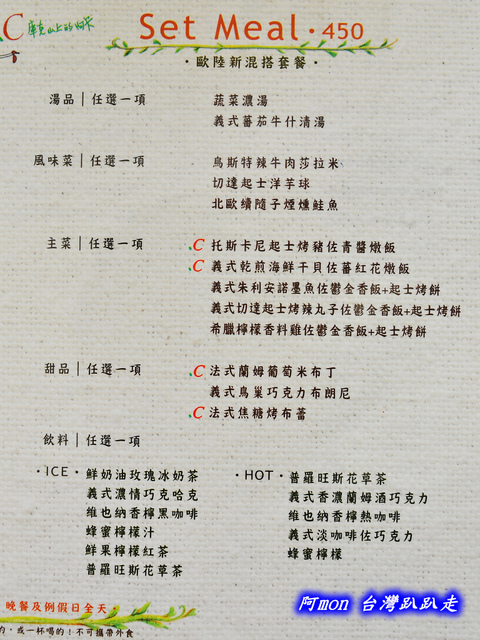 C 摩克山上的好菜
Set Meal · 450
· 歐陸新混搭套餐 ·
湯品｜任選一項
蔬菜濃湯
義式蕃茄牛什清湯
風味菜｜任選一項
烏斯特辣牛肉莎拉米
切達起士洋芋球
北歐續隨子煙燻鮭魚
主菜｜任選一項
C 托斯卡尼起士烤豬佐青醬燉飯
C 義式乾煎海鮮干貝佐蕃紅花燉飯
義式朱利安諾墨魚佐鬱金香飯+起士烤餅
義式切達起士烤辣丸子佐鬱金香飯+起士烤餅
希臘檸檬香料雞佐鬱金香飯+起士烤餅
甜品｜任選一項
C 法式蘭姆葡萄米布丁
義式鳥巢巧克力布朗尼
C 法式焦糖烤布蕾
飲料｜任選一項
· ICE · 鮮奶油玫瑰冰奶茶
義式濃情巧克哈克
維也納香檸黑咖啡
蜂蜜檸檬汁
鮮果檸檬紅茶
普羅旺斯花草茶
· HOT · 普羅旺斯花草茶
義式香濃蘭姆酒巧克力
維也納香檸熱咖啡
義式淡咖啡佐巧克力
蜂蜜檸檬
晚餐及例假日全天，
或一杯喝的！不可攜帶外食
阿mon 台灣趴趴走